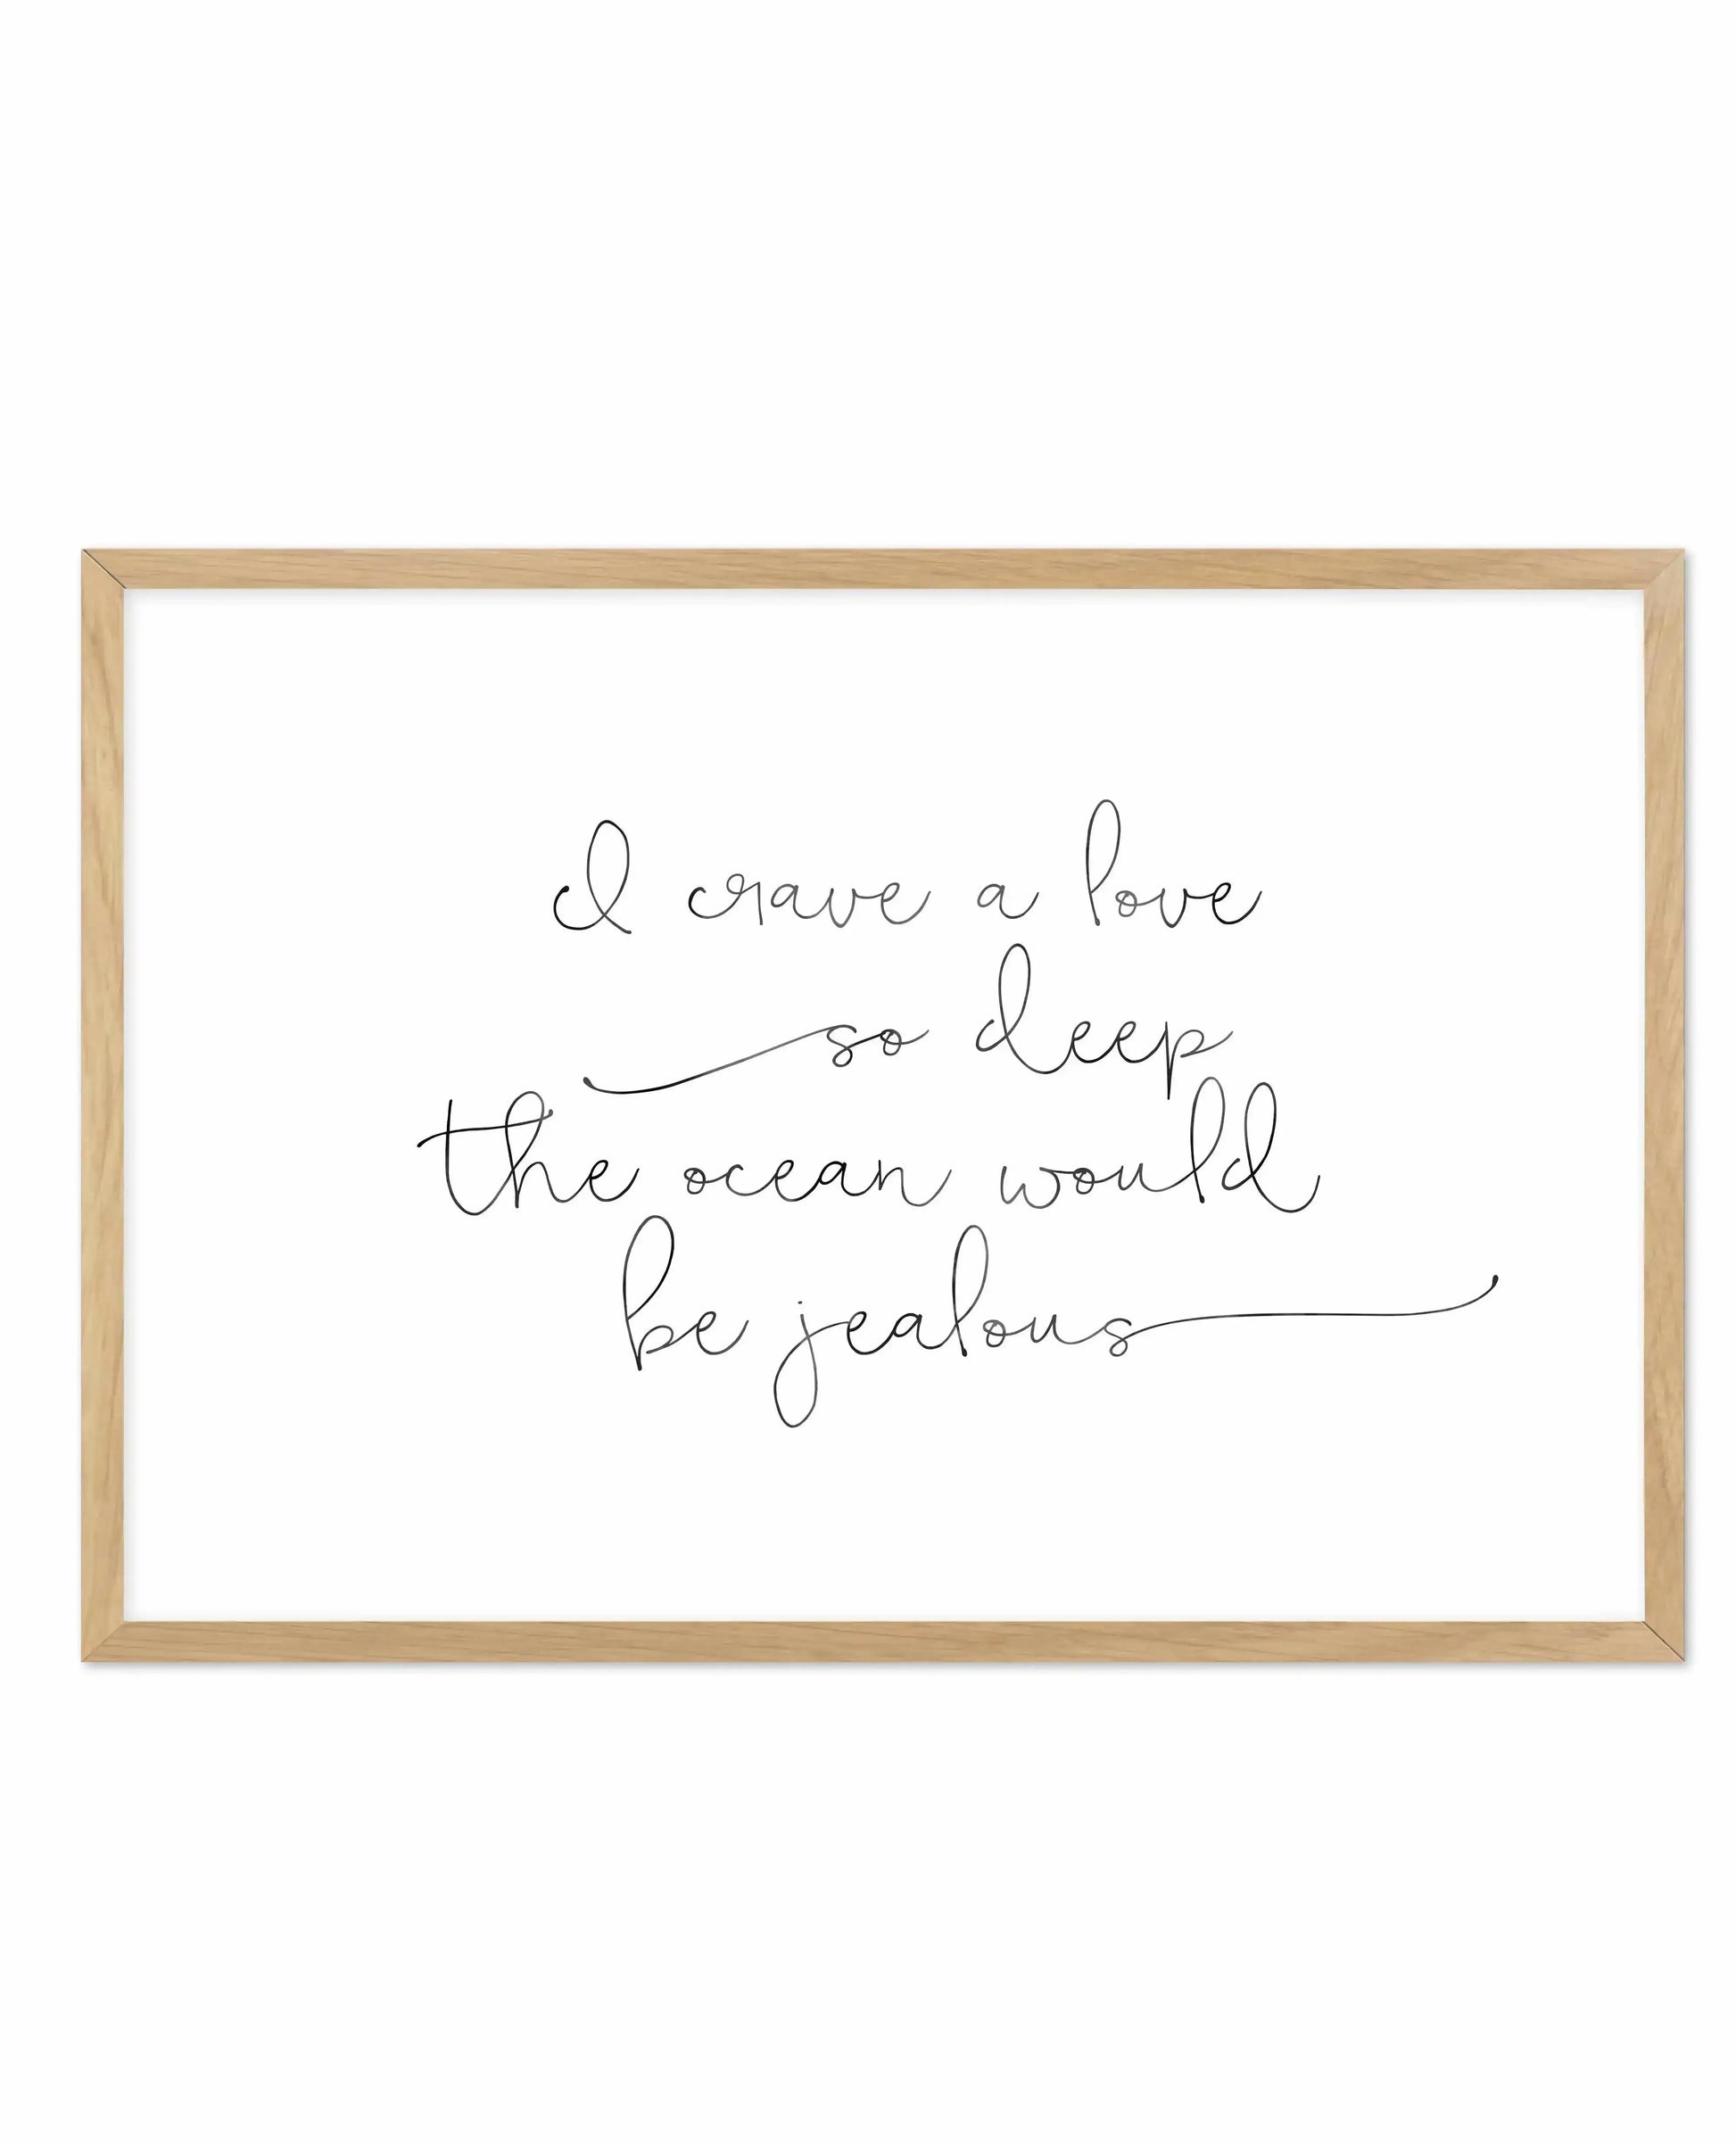 I crave a love
so deep
the ocean would
be jealous